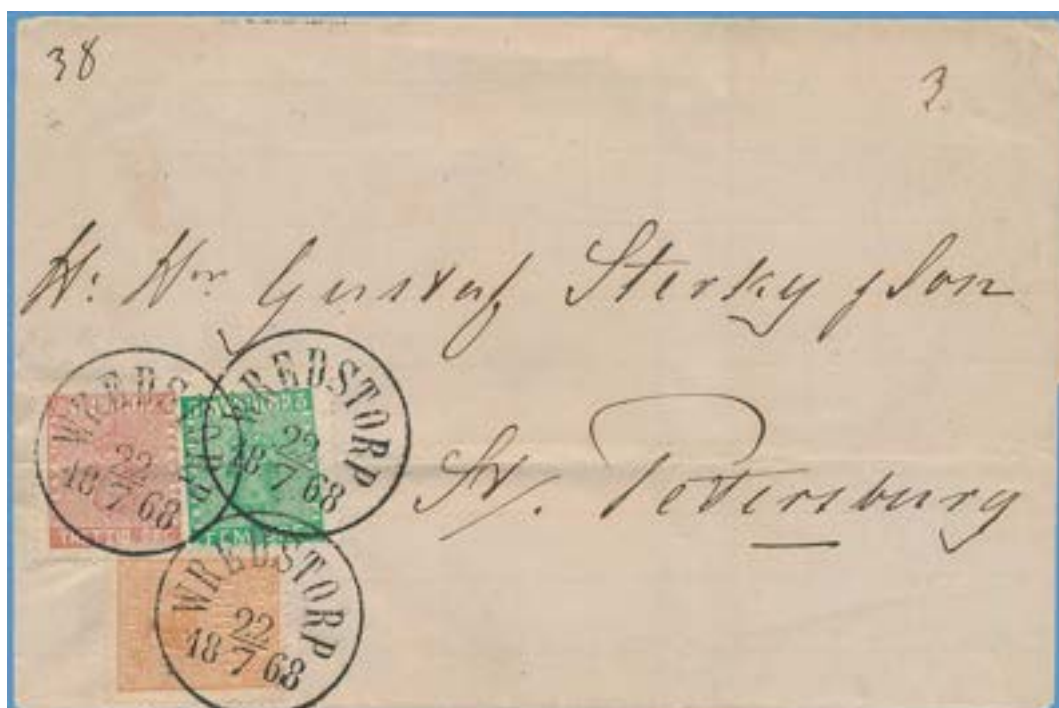 38
3
H. Hrr Gustaf Sterky & Son
St. Petersburg
WREDSTORP
22
18 7 68
WREDSTORP
22
18 7 68
FEM
WREDSTORP
22
18 7 68